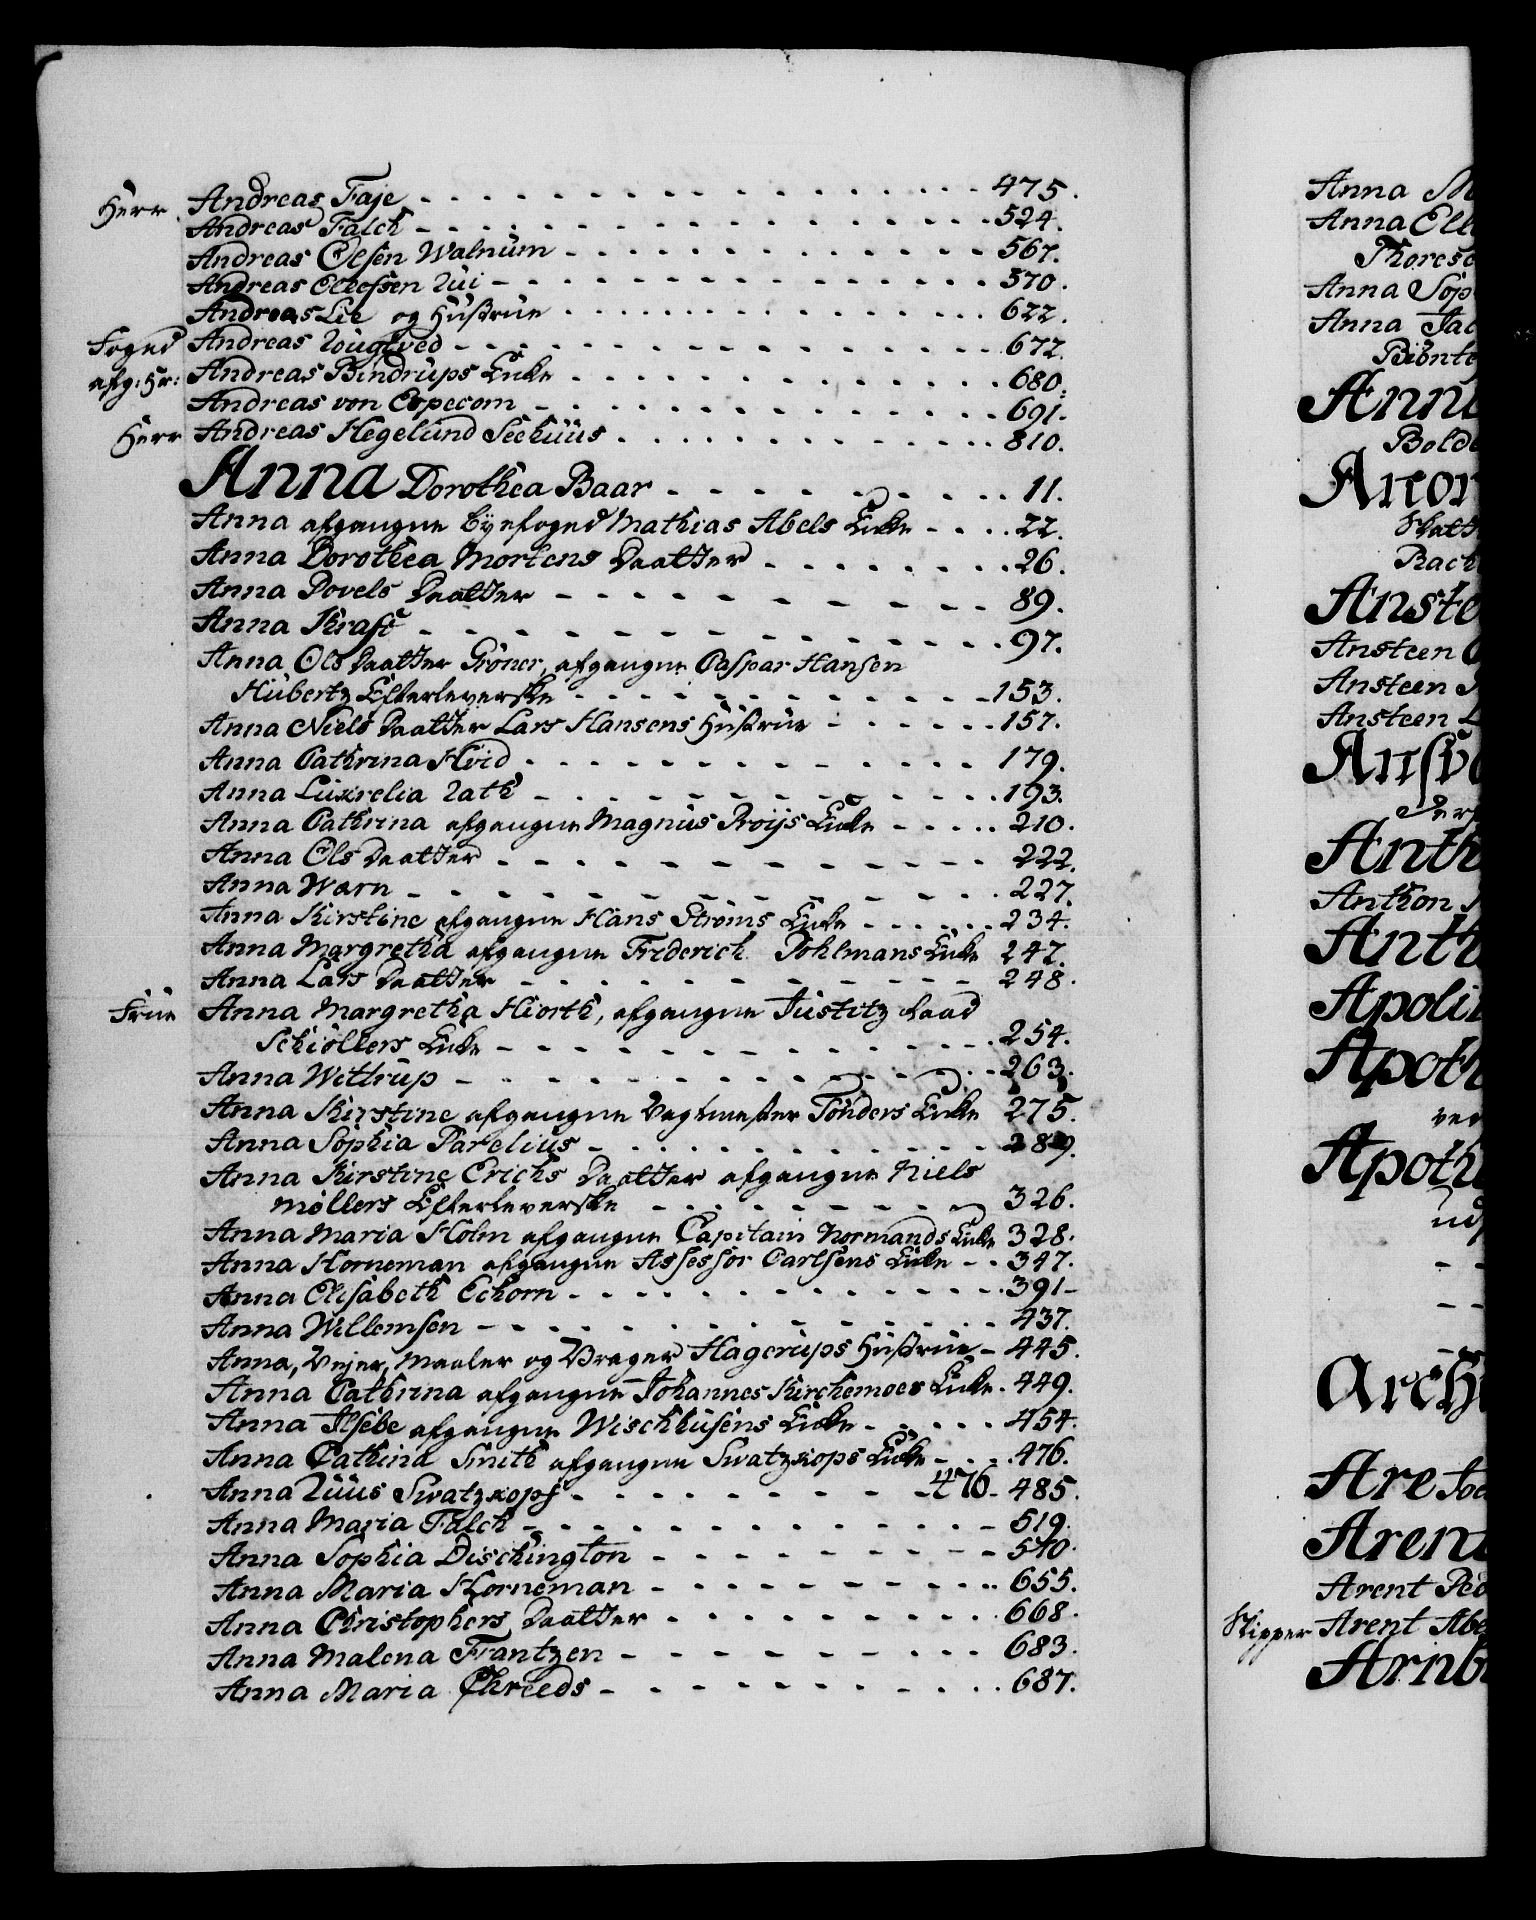 Herr Andreas Faje - - - 475.
Andreas Falch - - - 524.
Andreas Olsen Walnüm - - - 567.
Andreas Ellefsen - - - 570.
Andreas Lie og Hüstrüe - - - 622.
Foged Andreas - - - 672.
afg: Hr: Andreas Bindrüps Encke - - - 680.
Andreas von Especom - - - 691.
Herr Andreas Hegelünd Sechüüs - - - 810.
Anna Dorothea Baar - - - 11.
Anna afgangne Byefoged Mathias Abels Encke - - - 22.
Anna Dorothea Mortens Daatter - - - 26.
Anna Povels Daatter - - - 89.
Anna Kraft - - - 97.
Anna Ols Daatter Gröner, afgangne Caspar Hansen
Hübertz Efterleverske - - - 153.
Anna Niels Daatter Lars Hansens Hüstrüe - - - 157.
Anna Cathrina Hvid - - - 179.
Anna Lüxrelia - - - 193.
Anna Cathrina afgangne Magnüs Roijs Encke - - - 210.
Anna Ols Daatter - - - 222.
Anna Warn - - - 227.
Anna Kirstine afgangne Hans Ströms Encke - - - 234.
Anna Margretha afgangne Friderich Pohlmans Encke 247.
Anna Lars Daatter - - - 248.
Früe Anna Margretha Hiorth, afgangne Justitz Raad
Schiöllers Encke - - - 254.
Anna Wittrüp - - - 263.
Anna Kirstine afgangne Vagtmester Tönders Encke 275.
Anna Sophia Parelius - - - 289.
Anna Kirstine Erichs Daatter afgangne Niels
Möllers Efterleverske - - - 326.
Anna Maria Holm afgangne Capitain Normands Encke 328.
Anna Horneman afgangne Assessor Carlsens Encke - - 347.
Anna Elisabeth Echorn - - - 391-
Anna Willemsen - - - 437.
Anna, Vejer, Maaler og Vrager Hagerüps Hüstrüe - 445.
Anna Cathrina afgangne Johannes Kirchemoes Encke. 449.
Anna Ilsebe afgangne Wischhüsens Encke - - - 454.
Anna Cathina Smith afgangne Swatzkops Encke - - - 476.
Anna Swatzkopf - - - 476- 485.
Anna Maria Falch - - - 519.
Anna Sophia Dischington - - - 540.
Anna Maria Horneman - - - 655.
Anna Christophers Daatter - - - 668.
Anna Malena Frantzen - - - 683.
Anna Maria Chreeds - - - 687.
Anna M
Anna Ell
Thorese
Anna Sop
Anna Jac
Anna
Bold
Rach
Anste
Ansteen
Ansteen
Ansteen L
Ansv
Anth
Anthon
Anth
Apoli
Apoth
ver
Apoth
ud
- -
- -
Arch
Are
Arent
Arent Ped
Skipper Arent Abe
Arnb